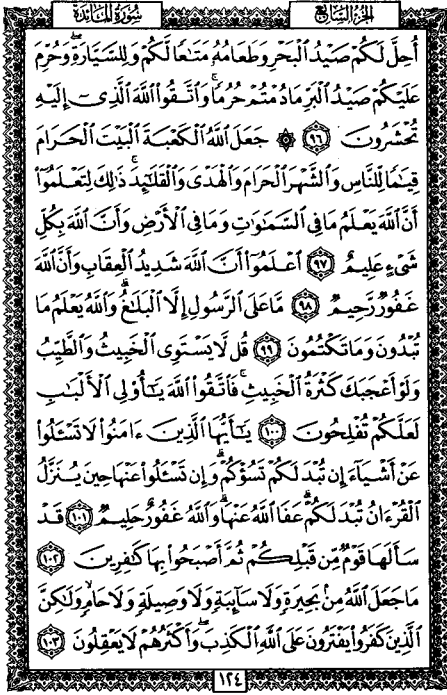 سُورَةُ المَائدَة الجُزءُ السَّابع
أُحِلَّ لَكُمْ صَيْدُ ٱلْبَحْرِ وَطَعَامُهُۥ مَتَٰعًا لَّكُمْ وَلِلسَّيَّارَةِ ۖ وَحُرِّمَ
عَلَيْكُمْ صَيْدُ ٱلْبَرِّ مَا دُمْتُمْ حُرُمًا ۗ وَٱتَّقُوا۟ ٱللَّهَ ٱلَّذِىٓ إِلَيْهِ
تُحْشَرُونَ ٩٦ ۞ جَعَلَ ٱللَّهُ ٱلْكَعْبَةَ ٱلْبَيْتَ ٱلْحَرَامَ
قِيَٰمًا لِّلنَّاسِ وَٱلشَّهْرَ ٱلْحَرَامَ وَٱلْهَدْىَ وَٱلْقَلَٰٓئِدَ ۚ ذَٰلِكَ لِتَعْلَمُوٓا۟
أَنَّ ٱللَّهَ يَعْلَمُ مَا فِى ٱلسَّمَٰوَٰتِ وَمَا فِى ٱلْأَرْضِ وَأَنَّ ٱللَّهَ بِكُلِّ
شَىْءٍ عَلِيمٌ ٩٧ ٱعْلَمُوٓا۟ أَنَّ ٱللَّهَ شَدِيدُ ٱلْعِقَابِ وَأَنَّ ٱللَّهَ
غَفُورٌ رَّحِيمٌ ٩٨ مَّا عَلَى ٱلرَّسُولِ إِلَّا ٱلْبَلَٰغُ ۗ وَٱللَّهُ يَعْلَمُ مَا
تُبْدُونَ وَمَا تَكْتُمُونَ ٩٩ قُل لَّا يَسْتَوِى ٱلْخَبِيثُ وَٱلطَّيِّبُ
وَلَوْ أَعْجَبَكَ كَثْرَةُ ٱلْخَبِيثِ ۚ فَٱتَّقُوا۟ ٱللَّهَ يَٰٓأُو۟لِى ٱلْأَلْبَٰبِ
لَعَلَّكُمْ تُفْلِحُونَ ١٠٠ يَٰٓأَيُّهَا ٱلَّذِينَ ءَامَنُوا۟ لَا تَسْـَٔلُوا۟
عَنْ أَشْيَآءَ إِن تُبْدَ لَكُمْ تَسُؤْكُمْ وَإِن تَسْـَٔلُوا۟ عَنْهَا حِينَ يُنَزَّلُ
ٱلْقُرْءَانُ تُبْدَ لَكُمْ عَفَا ٱللَّهُ عَنْهَا ۗ وَٱللَّهُ غَفُورٌ حَلِيمٌ ١٠١ قَدْ
سَأَلَهَا قَوْمٌ مِّن قَبْلِكُمْ ثُمَّ أَصْبَحُوا۟ بِهَا كَٰفِرِينَ ١٠٢
مَا جَعَلَ ٱللَّهُ مِنۢ بَحِيرَةٍ وَلَا سَآئِبَةٍ وَلَا وَصِيلَةٍ وَلَا حَامٍ ۙ وَلَٰكِنَّ
ٱلَّذِينَ كَفَرُوا۟ يَفْتَرُونَ عَلَى ٱللَّهِ ٱلْكَذِبَ ۖ وَأَكْثَرُهُمْ لَا يَعْقِلُونَ ١٠٣
١٢٤